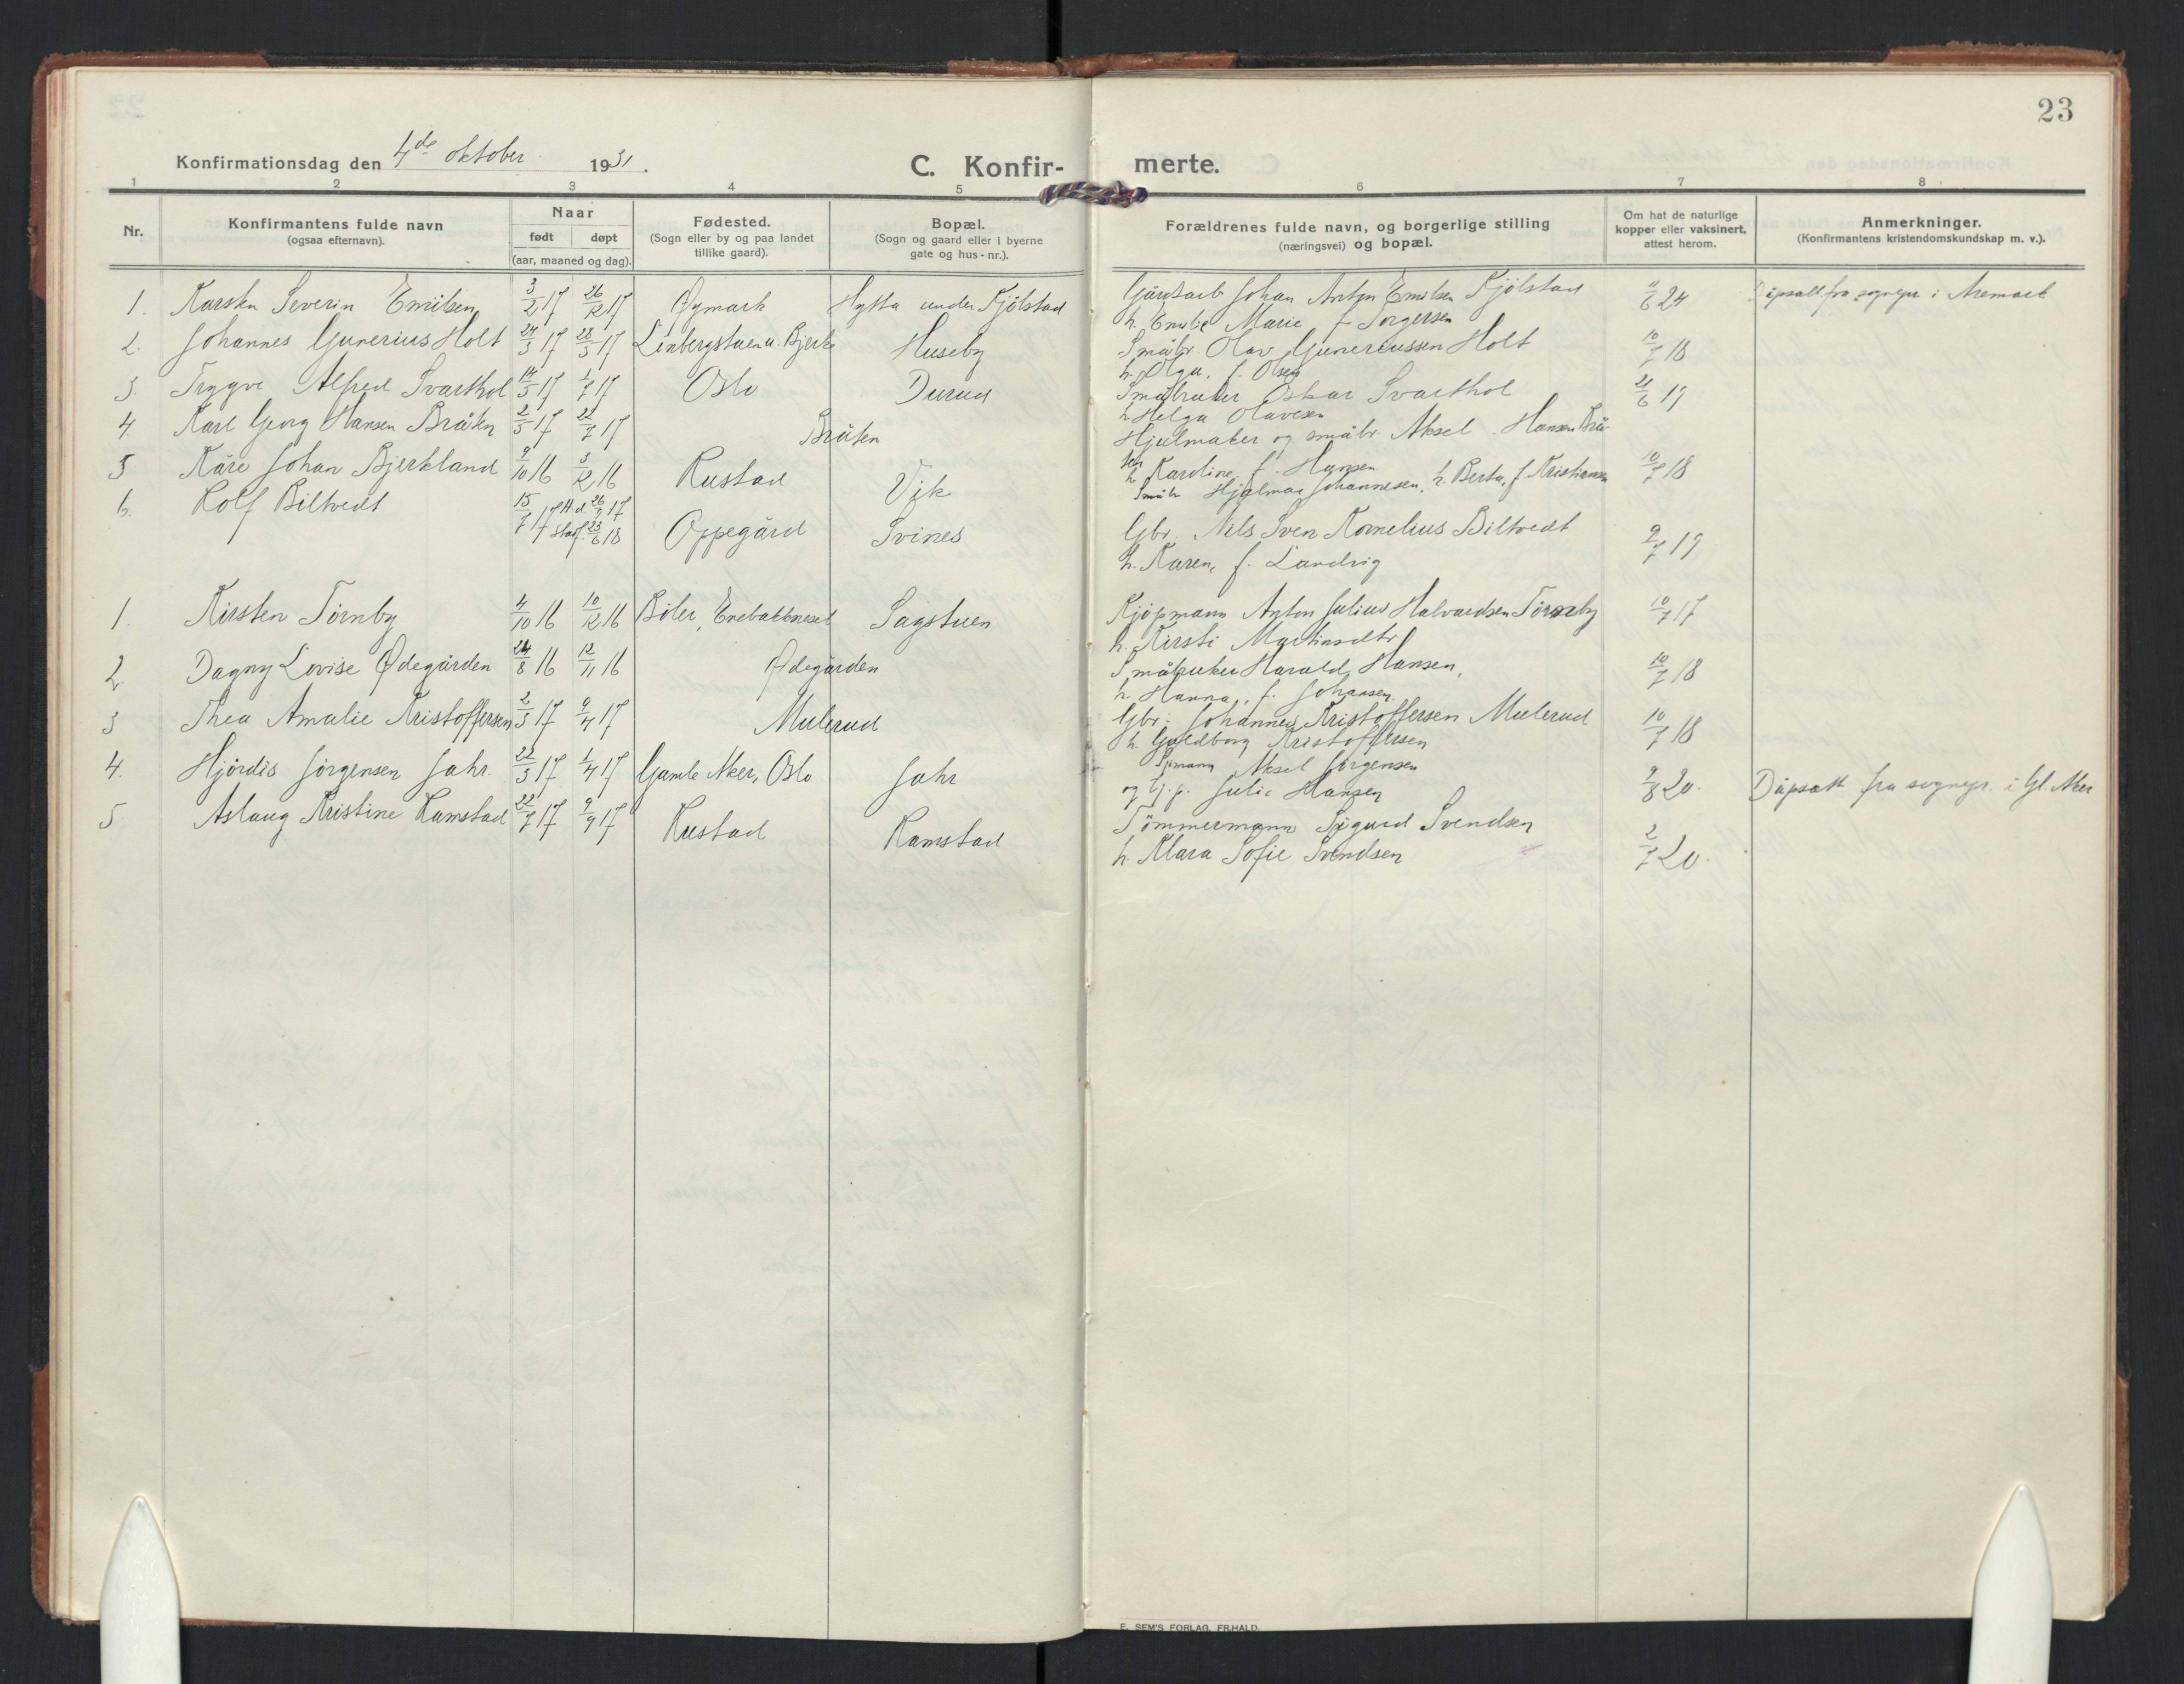 23
Konfirmationsdag den 4de oktober 1931.
C. Konfir-
merte.
1 2 3 4 5 6 7 8
Nr.
Konfirmantens fulde navn
(ogsaa efternavn).
Naar
født døpt
(aar, maaned og dag).
Fødested.
(Sogn eller by og paa landet
tillike gaard).
Bopæl.
(Sogn og gaard eller i byerne
gate og hus-nr.).
Forældrenes fulde navn, og borgerlige stilling
(næringsvei) og bopæl.
Om hat de naturlige
kopper eller vaksinert,
attest herom.
Anmerkninger.
(Konfirmantens kristendomskundskap m. v.).
1. Karsten Severin Emilsen 3/2 17 26/12 17 Øymark Hytta under Kjölstad Gårdsarb Johan Anton Emilsen Kjölstad 11/6 24 Dåpsatt fra sognepr i Aremark
h. Emilie Marie f. Torgersen
2. Johannes Gunerius Holt 24/3 17 28/5 17 Linbergstuen u. Bjerke Huseby Småbr Olav Gunereussen Holt 10/7 18
h. Olga, f. Olsen
3. Trygve Alfred Svarthol 14/5 17 1/7 17 Oslo Durud Småbruker Oskar Svarthol 21/6 19
h Helga Olavesen
4. Karl Georg Hansen Bråten 2/5 17 22/7 17 Bråten Hjulmaker og småbr. Aksel Hansen Brå-
ten h Karoline, f. Hansen 10/7 18
5 Kåre Johan Bjerkland 9/10 16 3/12 16 Rustad Vik Småbr Hjalmar Johannesen, h. Berta, f. Kristiansen
6. Rolf Biltvedt 15/7 17 H.d. 26/9 17 Stadf. 23/6 18 Oppegård Svines Gbr. Nils Sven Kornelius Biltvedt 9/7 19
h. Karen, f. Landvig
1. Kirsten Tørnby 4/10 16 10/12 16 Böler, Enebakkneset Sagstuen Kjöpmann Anton Julius Halvardsen Tørnby 10/7 17
h. Kirsti Martinsdtr
2 Dagny Lovise Ødegården 24/8 16 12/11 16 Ødegården Småbruker Harald Hansen, 10/7 18
h. Hanna, f. Johansen
3 Thea Amalie Kristoffersen 2/3 17 9/4 17 Mulerud Gbr. Johannes Kristoffersen Mulerud 10/7 18
h. Guldborg Kristoffersen
4. Hjördis Jörgensen Jahr. 22/3 17 1/4 17 Gamle Aker, Oslo Jahr Sjömann Aksel Jörgensen 9/8 20. Dåpsatt fra sognepr. i Gl. Aker
og Julie Hansen
5 Aslaug Kristine Ramstad 22/7 17 9/9 17 Rustad Ramstad Tömmermann Sigurd Svendsen 2/7 20.
h. Klara Sofie Svendsen
E. SEM'S FORLAG, FR.HALD.